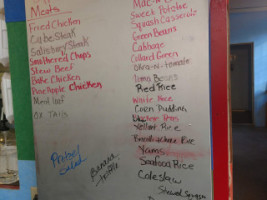 Meats
Fried Chicken
Cube Steak
Salisbury Steak
Smothered Chops
Stew Beef
Bake Chicken
Pineapple Chicken
Meat loaf
Ox Tails
Pretzel Salad
Banana
Mac-n-
Sweet Potatoe
Squash Casserole
Green Beans
Cabbage
Collard Green
Okra-n-tomato
Lima Beans
Red Rice
White Rice
Corn Pudding
Yellow Rice
Rice
Yams
Seafood Rice
Coleslaw
Stewed